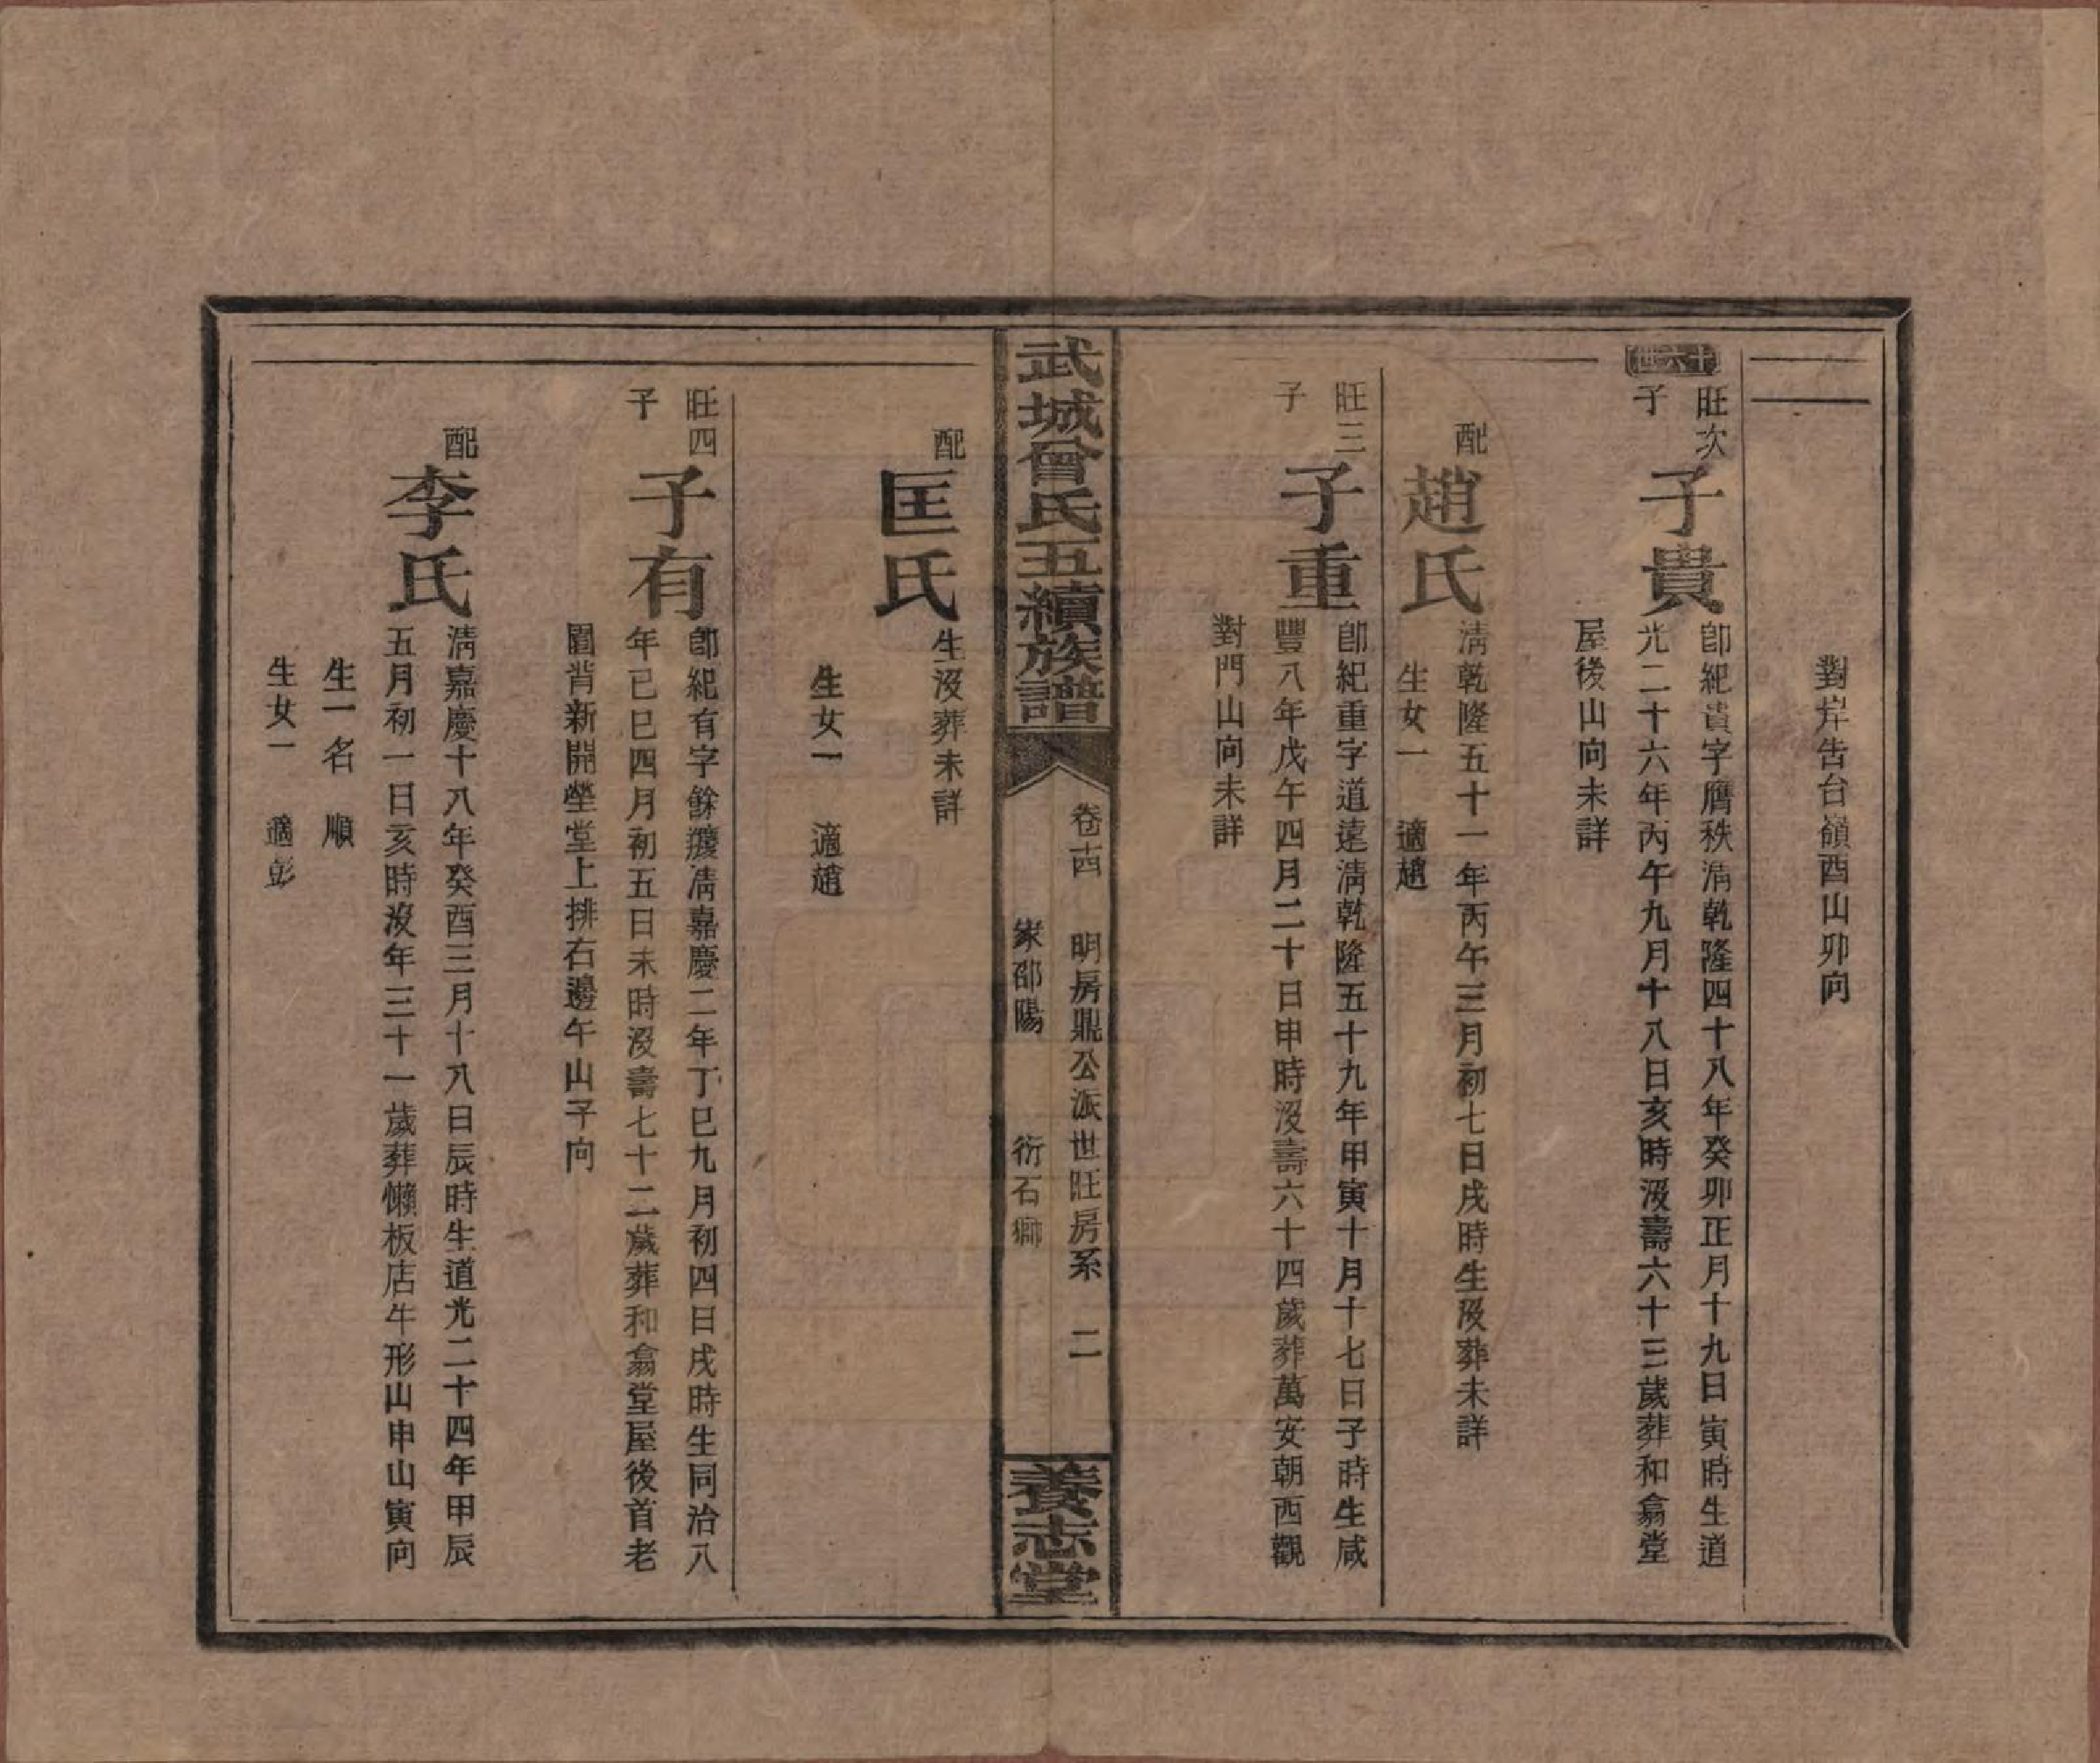 對岸告台嶺酉山卯向
六十四
旺次子
子貴
卽紀貴字膺秩清乾隆四十八年癸卯正月十九日寅時生道
光二十六年丙午九月十八日亥時沒壽六十三歲葬和翕堂
屋後山向未詳
配
趙氏
清乾隆五十一年丙午三月初七日戌時生沒葬未詳
生女一 適趙
旺三子
子重
卽紀重字道遠清乾隆五十九年甲寅十月十七日子時生咸
豐八年戊午四月二十日申時沒壽六十四歲葬萬安朝西觀
對門山向未詳
武城曾氏五續族譜
卷十四 明房鼎公派世旺房系 二
家邵陽 衍石獅
養志堂
配
匡氏
生沒葬未詳
生女一 適趙
旺四子
子有
卽紀有字餘清嘉慶二年丁巳九月初四日戌時生同治八
年己巳四月初五日未時沒壽七十二歲葬和翕堂屋後首老
圍背新開塋堂上排右邊午山子向
配
李氏
清嘉慶十八年癸酉三月十八日辰時生道光二十四年甲辰
五月初一日亥時沒年三十一歲葬懶板店牛形山申山寅向
生一名 順
生女一 適彭